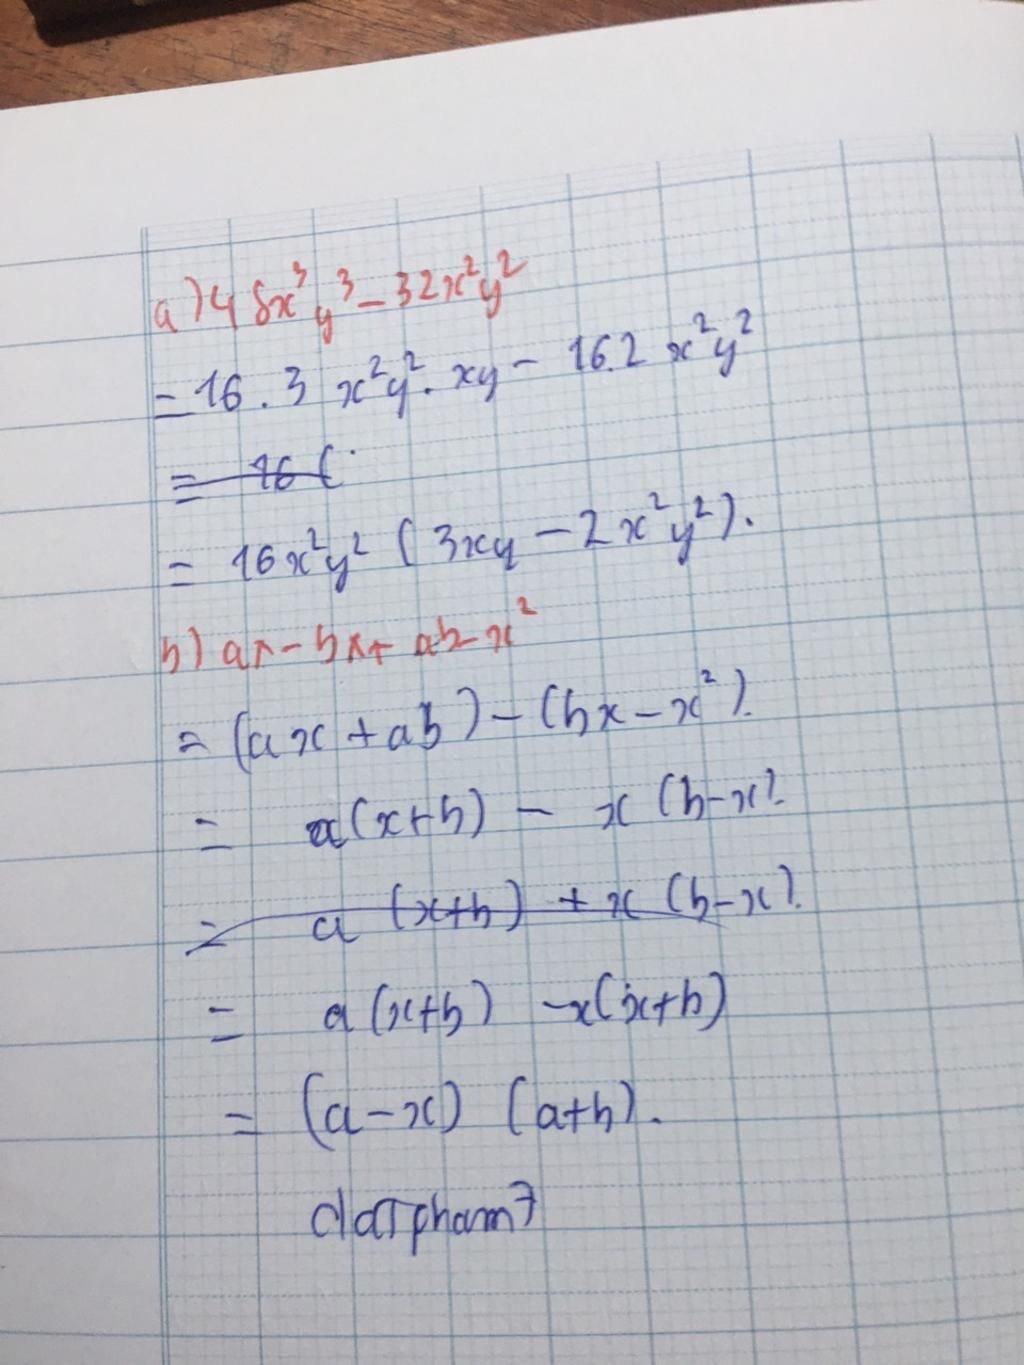 a) 48x³y³ - 32x²y²
= 16 . 3 x²y² . xy - 16.2 x²y²
= 16 (
= 16x²y² (3xy - 2x²y²).
b) ax - bx + ab - x²
= (ax + ab) - (bx - x²).
= a(x+b) - x(b-x).
= a (x+b) + x (b-x).
= a(x+b) - x(x+b)
= (a-x) (a+b).
datpham7